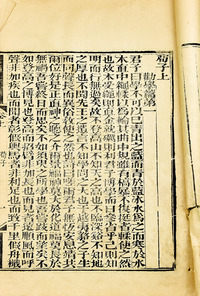 荀子上
勸學篇第一
君子曰學不可以已青出之藍而青於藍冰水爲之而寒於水
木直中繩輮以爲輪其曲中規雖有槁暴不復挺者輮使之然
也故木受繩則直金就礪則利君子博學而日參省乎己則知
明而行無過矣故不登高山不知天之高也不臨深谿不知地
之厚也不聞先王之遺言不知學問之大也干越夷貉之子生
而同聲長而異俗教使之然也詩曰嗟爾君子無恒安息靖共
爾位好是正直神之聽之介爾景福神莫大於化道福莫長於
無禍吾嘗終日而思矣不如須臾之所學也吾嘗跂而望矣不
如登高之博見也登高而招臂非加長也而見者遠順風而呼
聲非加疾也而聞者彰假輿馬者非利足也而致千里假舟檝